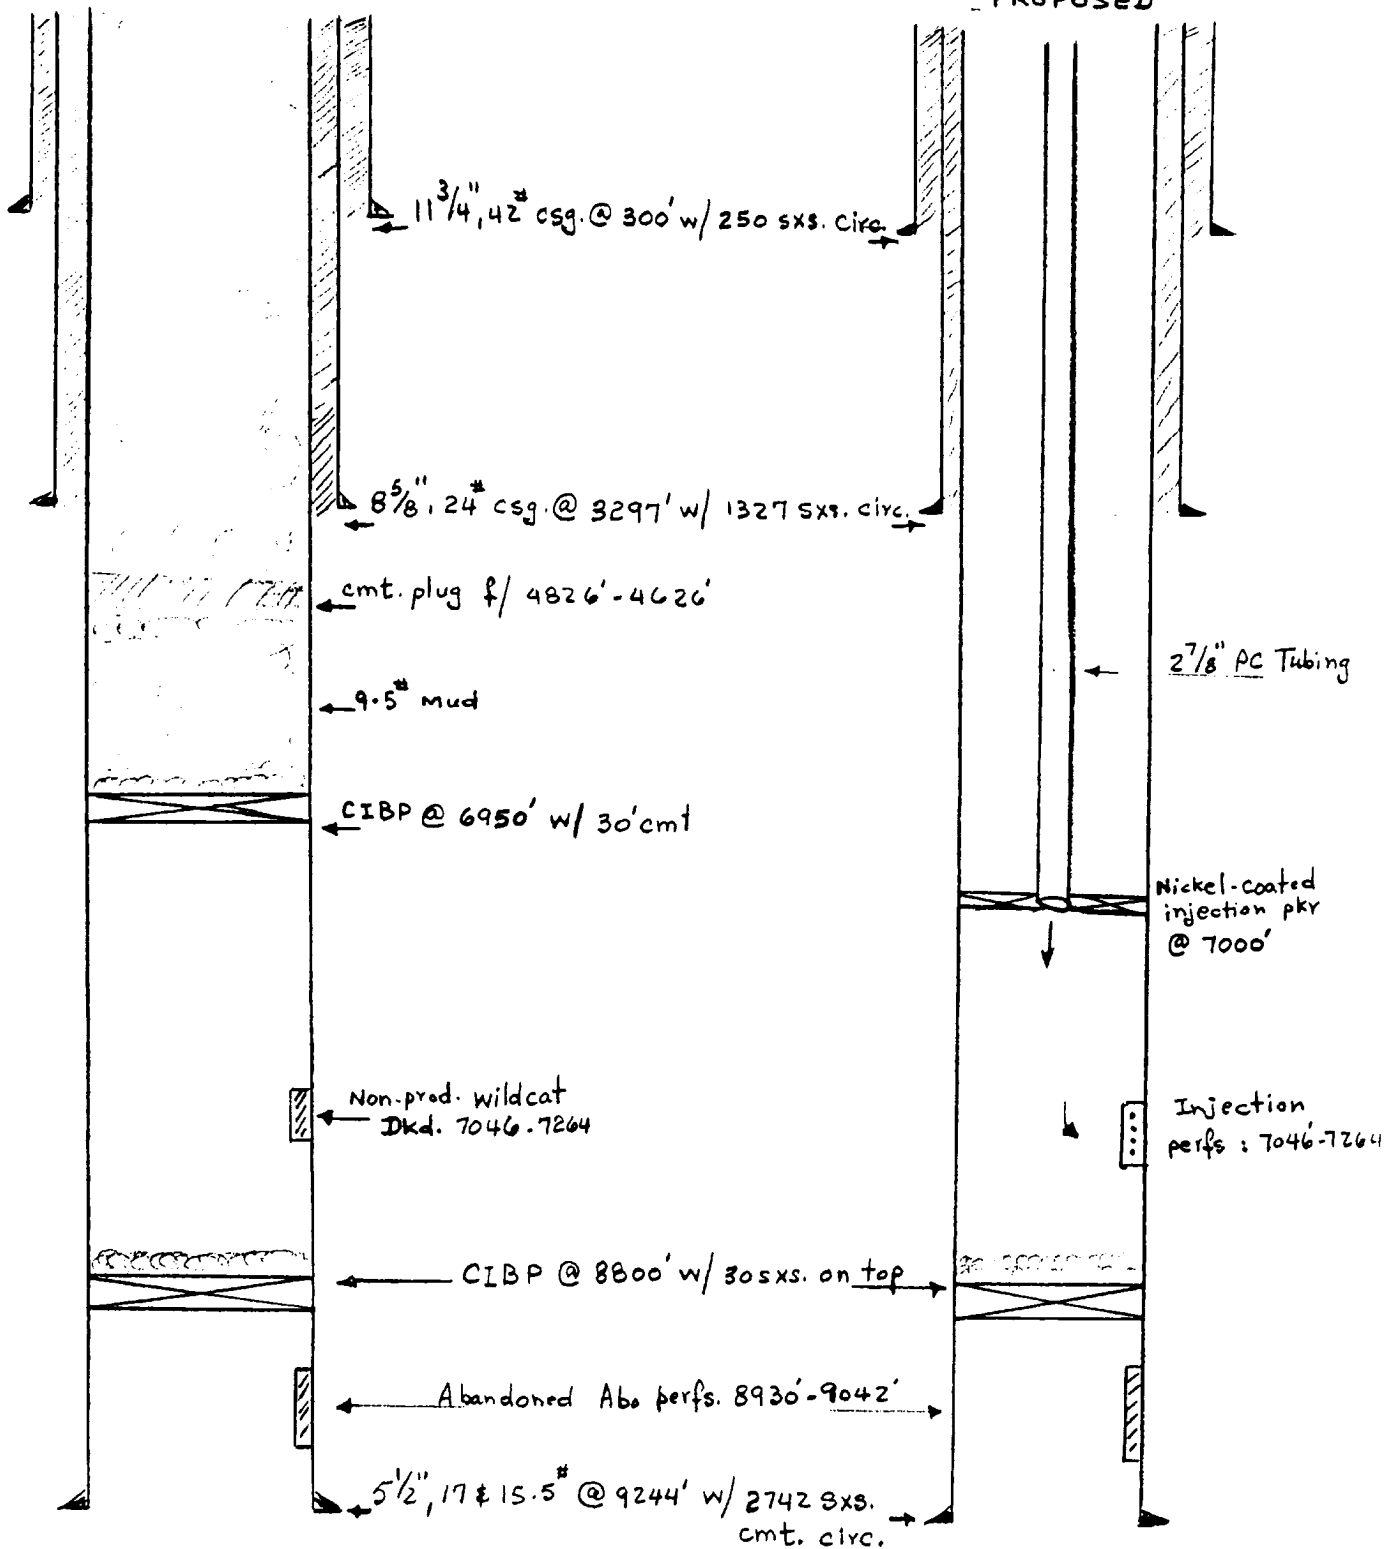 PROPOSED
11 3/4", 42# csg. @ 300' w/ 250 sxs. Circ.
8 5/8", 24# csg. @ 3297' w/ 1327 sxs. circ.
cmt. plug f/ 4826'-4626'
2 7/8" PC Tubing
9.5# Mud
CIBP @ 6950' w/ 30' cmt
Nickel-coated
injection pkr
@ 7000'
Non-prod. wildcat
Dkd. 7046-7264
Injection
perfs : 7046'-7264
CIBP @ 8800' w/ 30 sxs. on top
Abandoned Abo perfs. 8930'-9042'
5 1/2", 17 & 15.5# @ 9244' w/ 2742 sxs.
cmt. circ.